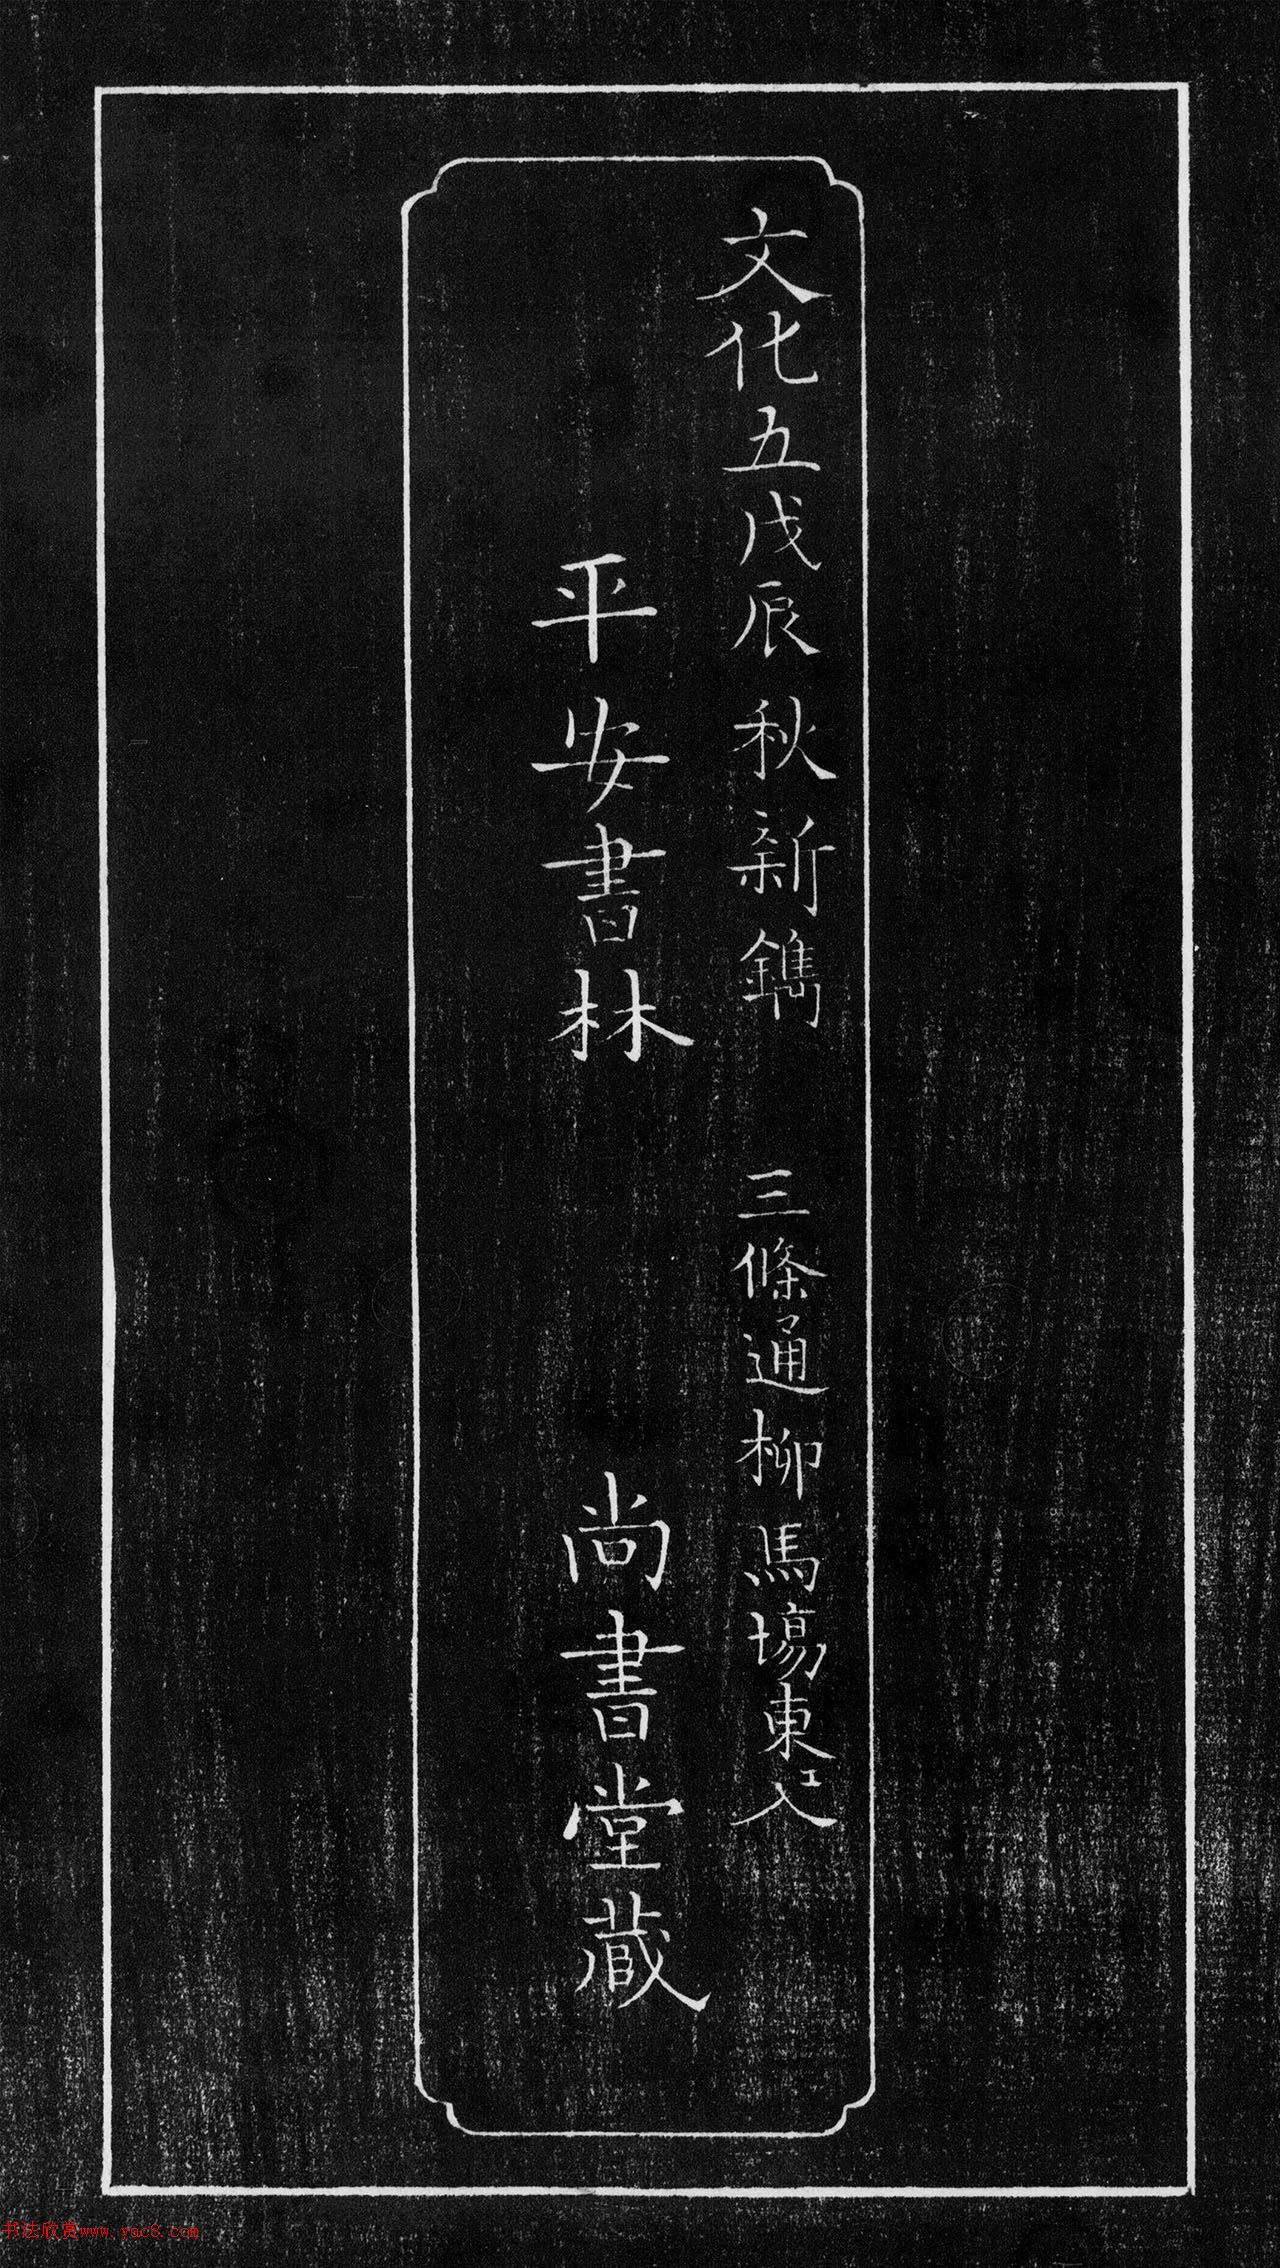 文化五戊辰秋新鐫　三條通柳馬場東エ入
平安書林　尚書堂蔵
书法欣赏www.yac8.com